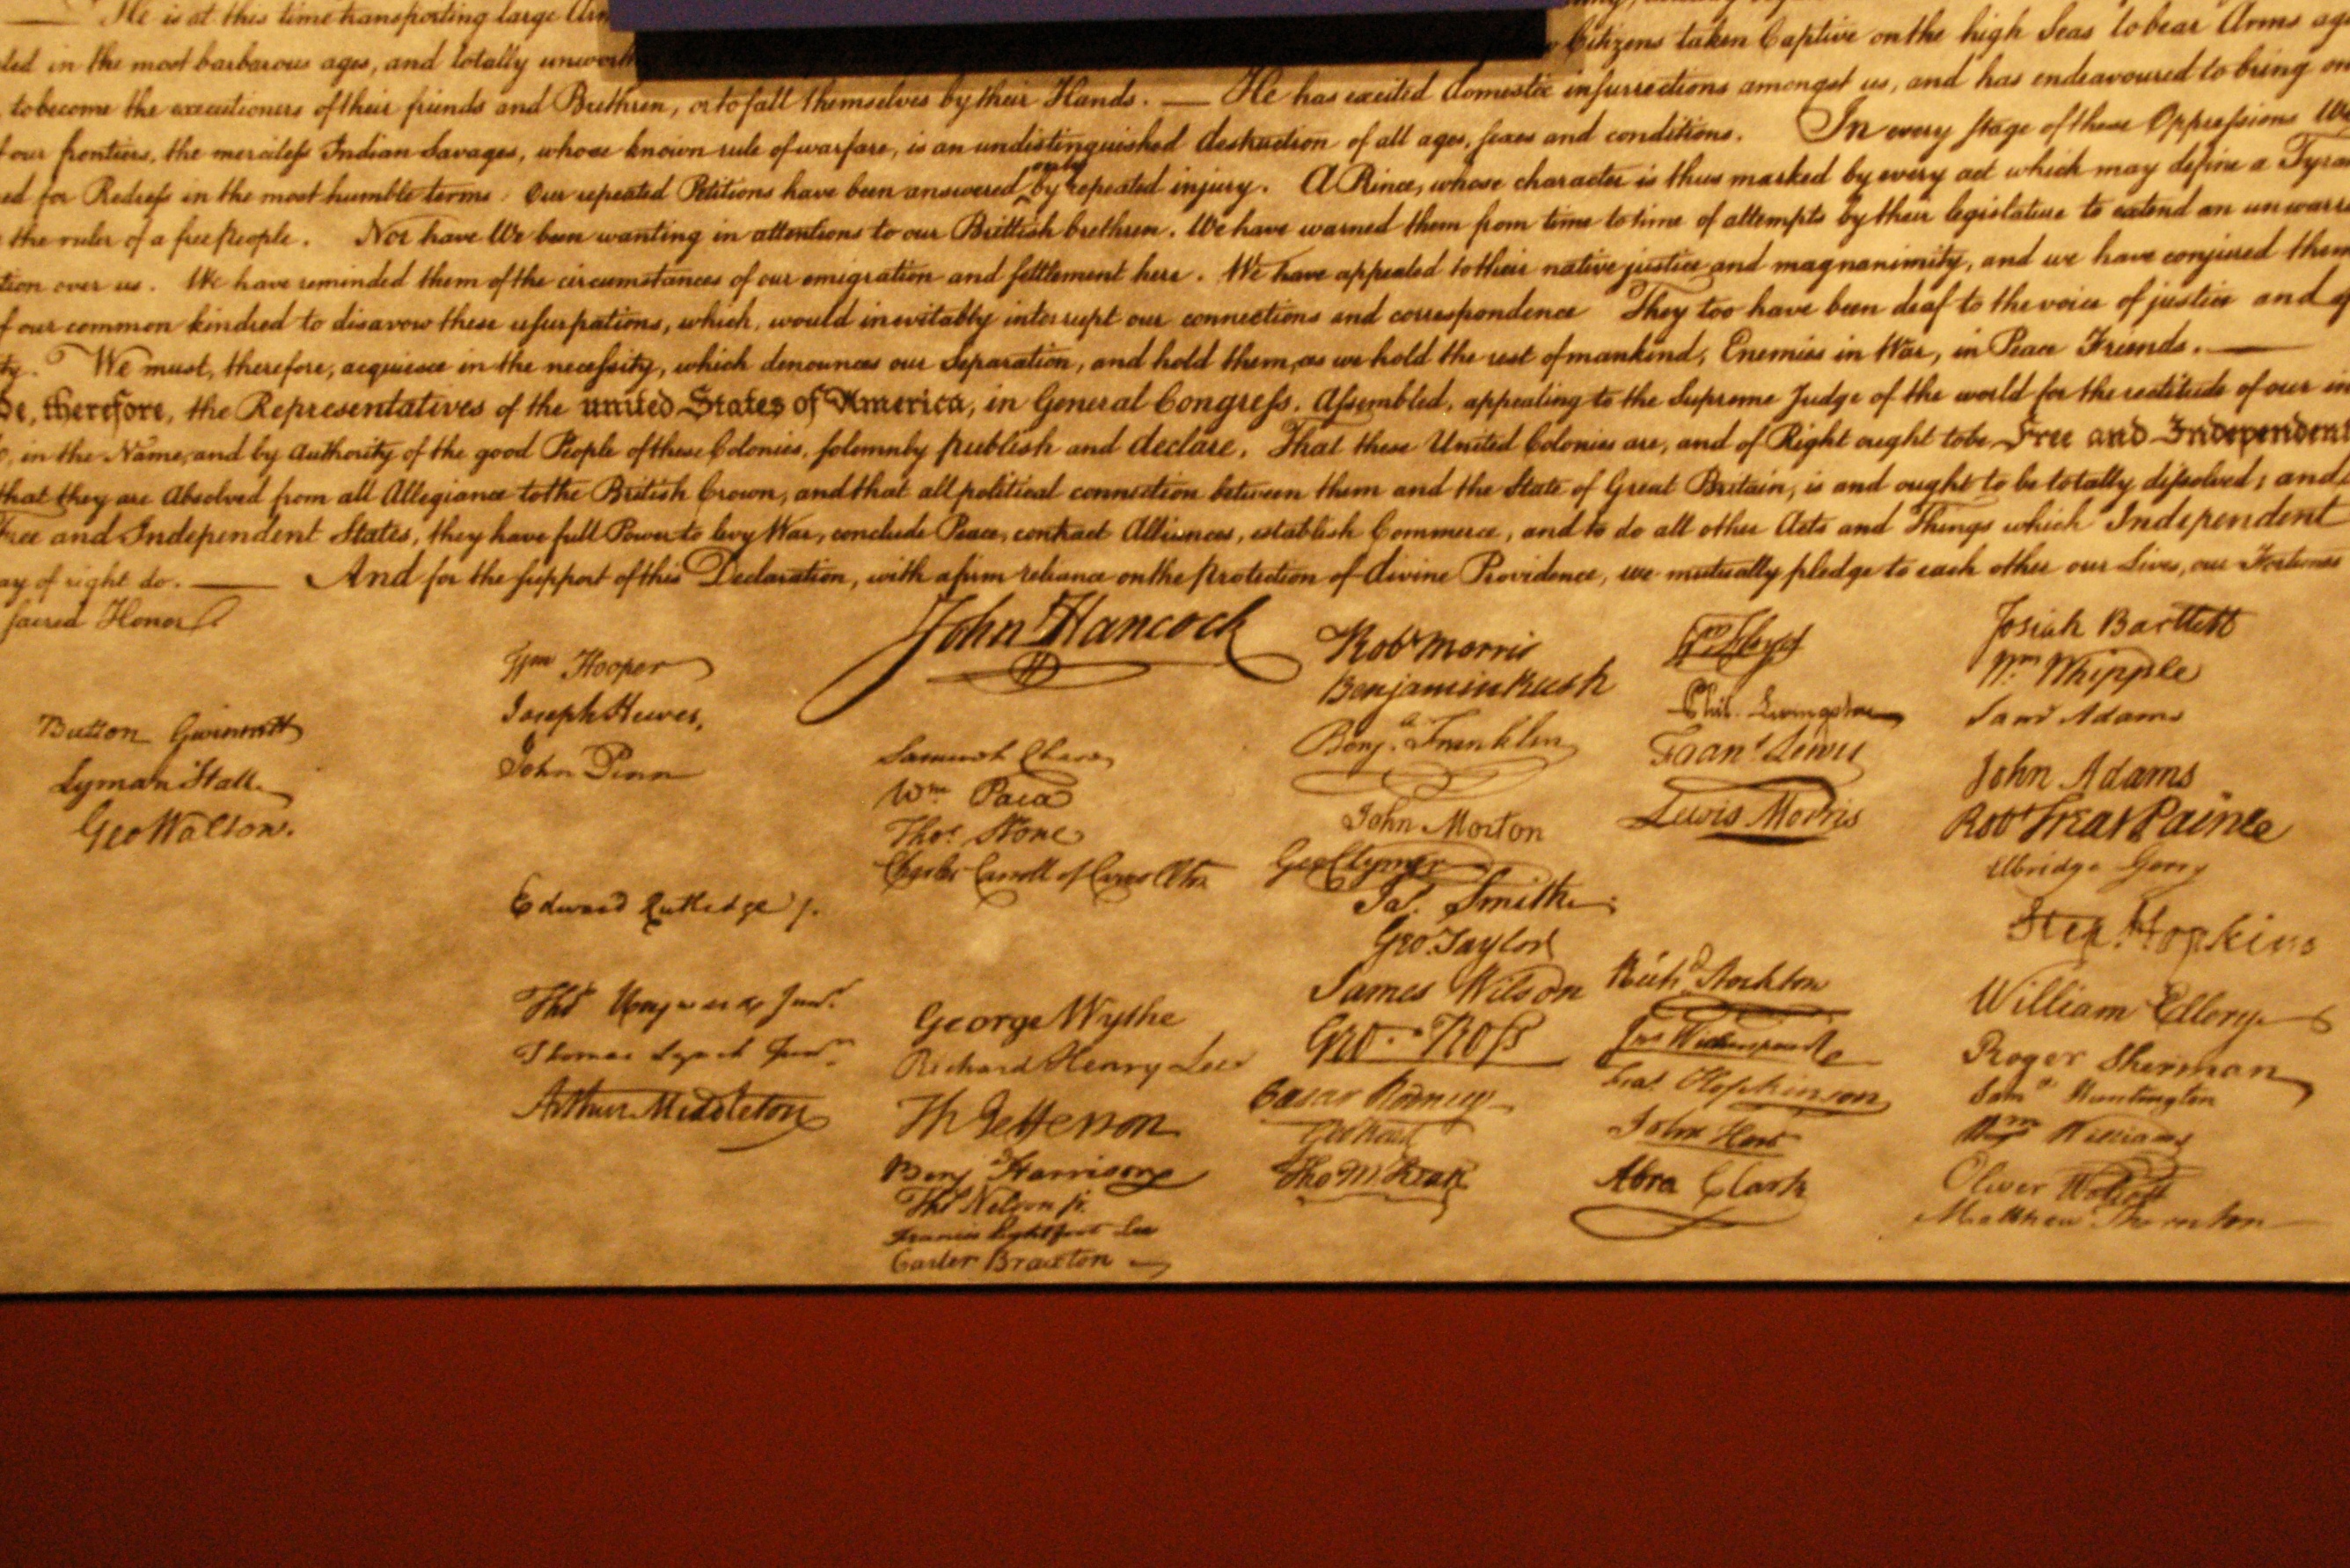 He is at this time transporting large
in the most barbarous ages, and totally
Citizens taken Captive on the high Seas to bear Arms
to become the executioners of their friends and Brethren, or to fall themselves by their Hands. — He has excited domestic insurrections amongst us, and has endeavoured to bring on
our frontiers, the merciless Indian Savages, whose known rule of warfare, is an undistinguished destruction of all ages, sexes and conditions. In every stage of these Oppressions We
for Redress in the most humble terms: Our repeated Petitions have been answered only by repeated injury. A Prince, whose character is thus marked by every act which may define a
the ruler of a free people. Nor have We been wanting in attentions to our Brittish brethren. We have warned them from time to time of attempts by their legislature to extend an
over us. We have reminded them of the circumstances of our emigration and settlement here. We have appealed to their native justice and magnanimity, and we have conjured them
our common kindred to disavow these usurpations, which, would inevitably interrupt our connections and correspondence They too have been deaf to the voice of justice and
We must, therefore, acquiesce in the necessity, which denounces our Separation, and hold them, as we hold the rest of mankind, Enemies in War, in Peace Friends. —
therefore, the Representatives of the united States of America, in General Congress, Assembled, appealing to the Supreme Judge of the world for the rectitude of our
in the Name, and by Authority of the good People of these Colonies, solemnly publish and declare, That these United Colonies are, and of Right ought to be Free and Independent
that they are Absolved from all Allegiance to the British Crown, and that all political connection between them and the State of Great Britain, is and ought to be totally dissolved; and
Free and Independent States, they have full Power to levy War, conclude Peace, contract Alliances, establish Commerce, and to do all other Acts and Things which Independent
of right do. — And for the support of this Declaration, with a firm reliance on the protection of divine Providence, we mutually pledge to each other our Lives, our Fortunes
sacred Honor.
Button Gwinnett
Lyman Hall
Geo Walton.
Wm Hooper
Joseph Hewes,
John Penn
Edward Rutledge /.
Thos Heyward Junr.
Thomas Lynch Junr.
Arthur Middleton
John Hancock
Samuel Chase
Wm. Paca
Thos. Stone
Charles Carroll of Carrollton
George Wythe
Richard Henry Lee
Th Jefferson
Benj Harrison
Thos Nelson jr.
Francis Lightfoot Lee
Carter Braxton
Robt Morris
Benjamin Rush
Benja. Franklin
John Morton
Geo Clymer
Jas. Smith.
Geo. Taylor
James Wilson
Geo. Ross
Caesar Rodney
Geo Read
Tho M:Kean
Wm Floyd
Phil. Livingston
Frans. Lewis
Lewis Morris
Richd. Stockton
Jno Witherspoon
Fras. Hopkinson
John Hart
Abra Clark
Josiah Bartlett
Wm. Whipple
Saml Adams
John Adams
Robt Treat Paine
Elbridge Gerry
Step. Hopkins
William Ellery
Roger Sherman
Saml Huntington
Wm Williams
Oliver Wolcott
Matthew Thornton